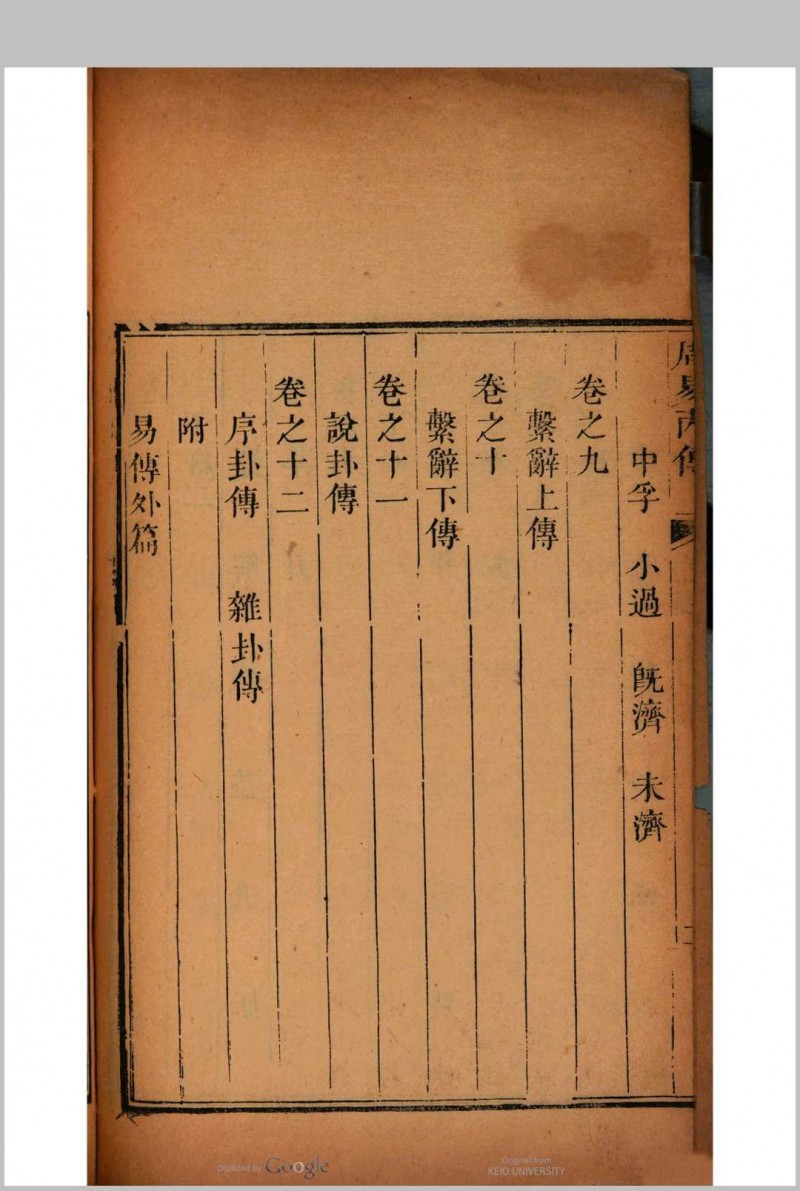 中孚　小過　旣濟　未濟
卷之九
繫辭上傳
卷之十
繫辭下傳
卷之十一
說卦傳
卷之十二
序卦傳　雜卦傳
附
易傳外篇
Digitized by Google
Original from
KEIO UNIVERSITY